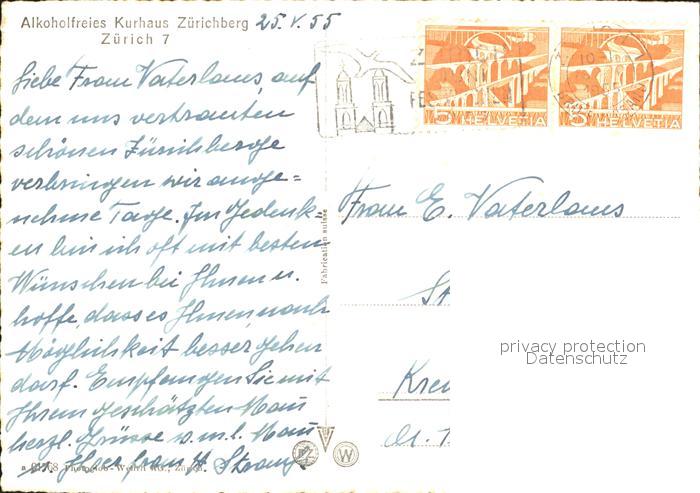 Alkoholfreies Kurhaus Zürichberg 25. V. 55
Zürich 7
Liebe Frau Vaterlaus, auf
dem uns vertrauten
schönen Zürichberge
verbringen wir ange=
nehme Tage. Im Gedenk=
en bin ich oft mit besten
Wünschen bei Ihnen u.
hoffe, dass es Ihnen nach
Möglichkeit besser gehen
darf. Empfangen Sie mit
Ihrem geschätzten Mann
herzl. Grüsse v. m. l. Mann
Ihrer Frau H.
HELVETIA 5
HELVETIA 5
Fabrication suisse
Frau E. Vaterlaus
St
Kreu
privacy protection
Datenschutz
W
Photoglob-Wehrli AG., Zürich